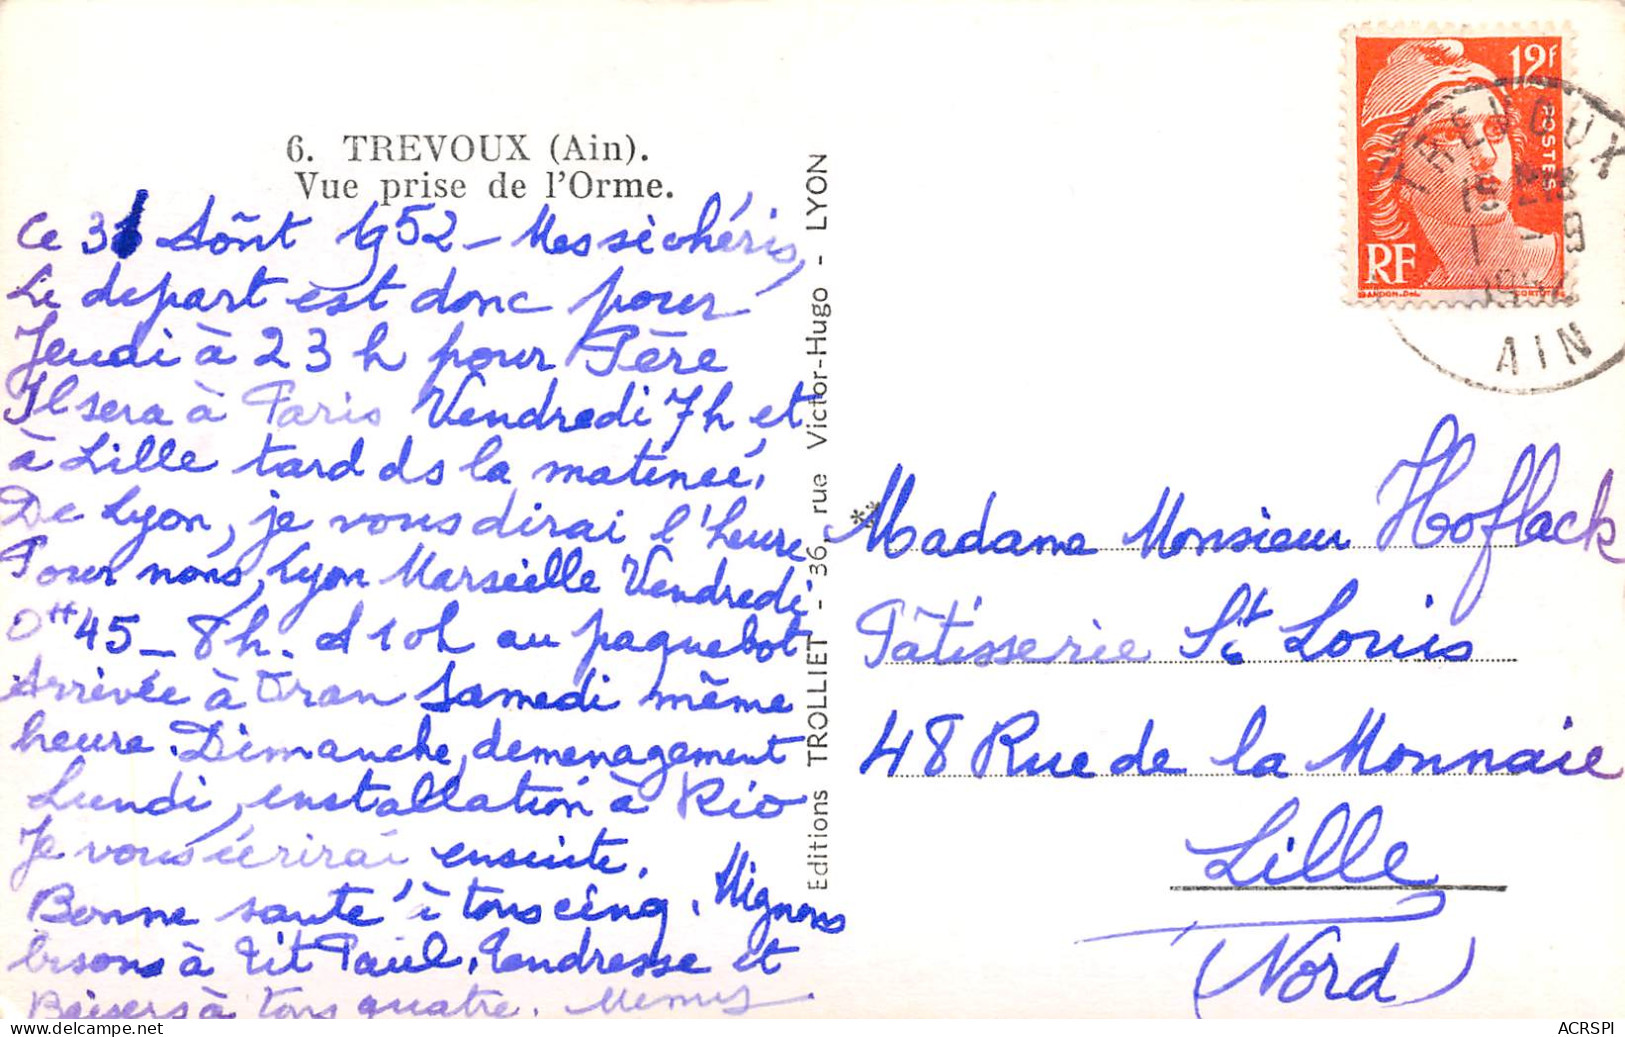 6. TREVOUX (Ain).
Vue prise de l'Orme.
Ce 31 Aôut 1952 - Mes si chéris,
Le départ est donc pour
Jeudi à 23 h pour Père
Il sera à Paris Vendredi 7h et
à Lille tard ds la matineé.
De Lyon, je vous dirai l'heure
Pour nous, Lyon Marseille Vendredi
0 45 - 8h. et 10h au paquebot
Arrivée à Oran Samedi même
heure. Dimanche, demenagement
Lundi, installation à Rio
Je vous écrirai ensuite.
Bonne santé à tous cinq. Mignons
bisons à Tit Paul. Tendresse et
Baisers à tous quatre.
Editions TROLLIET - 36, rue Victor-Hugo - LYON
12F
POSTES
RF
GANDON.Del.
CORTOT.Sc
TREVOUX
1 - 9
AIN
Madame Monsieur Hoflack
Pâtisserie St Louis
48 Rue de la Monnaie
Lille
(Nord)
ACRSPI